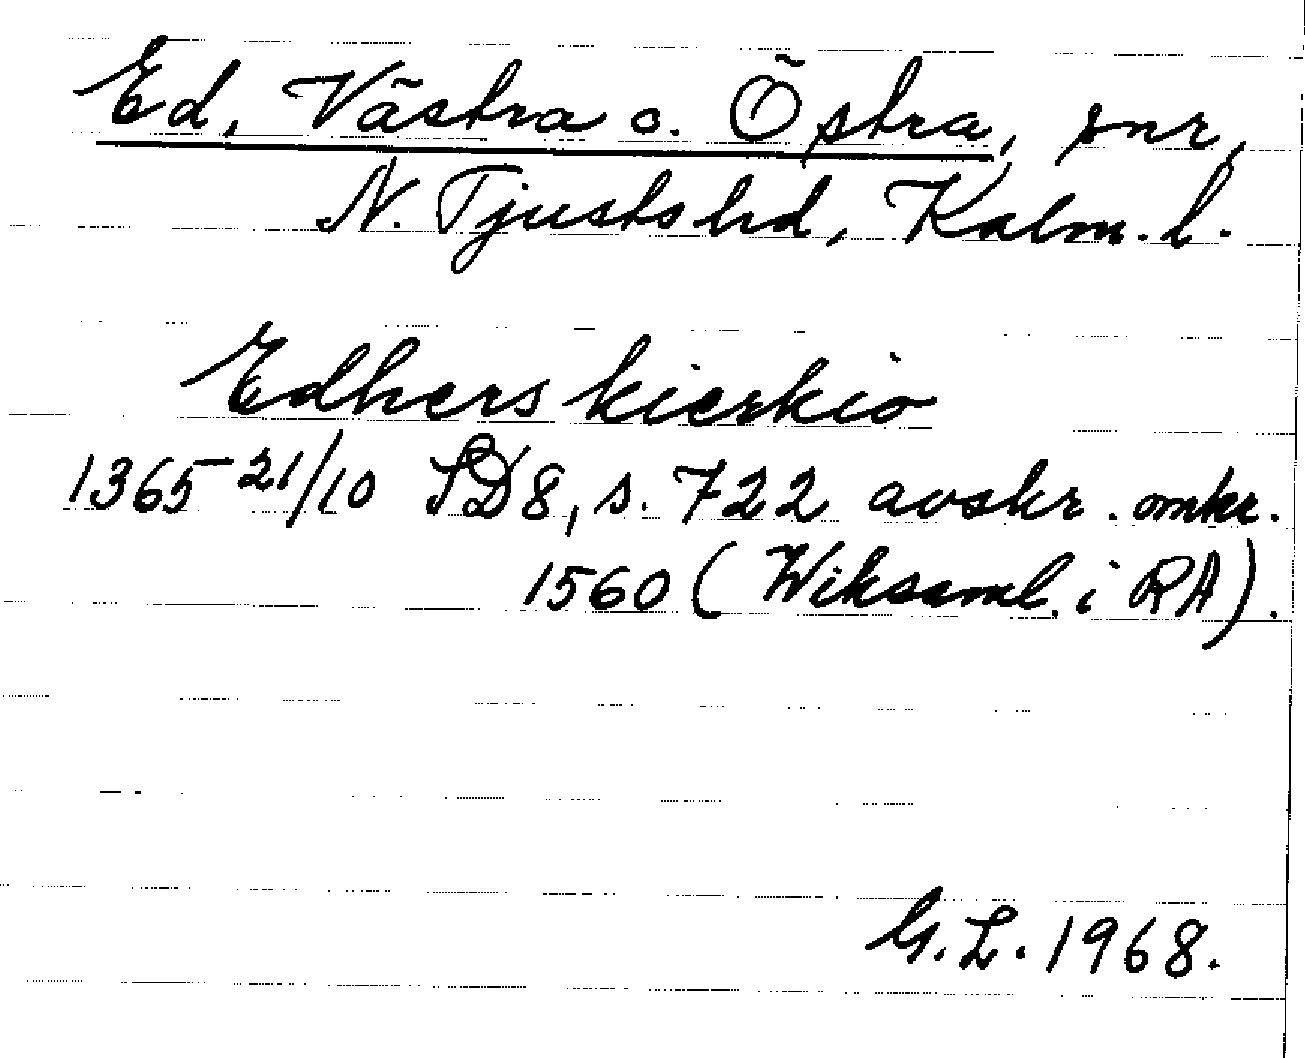 Ed, Västra o. Östra, snr,
N. Tjusts hd, Kalm. l.
Edhers kierkio
1365 21/10 SD8, s. 722 avskr. omkr.
1560 (Wiksaml. i RA).
G.L. 1968.